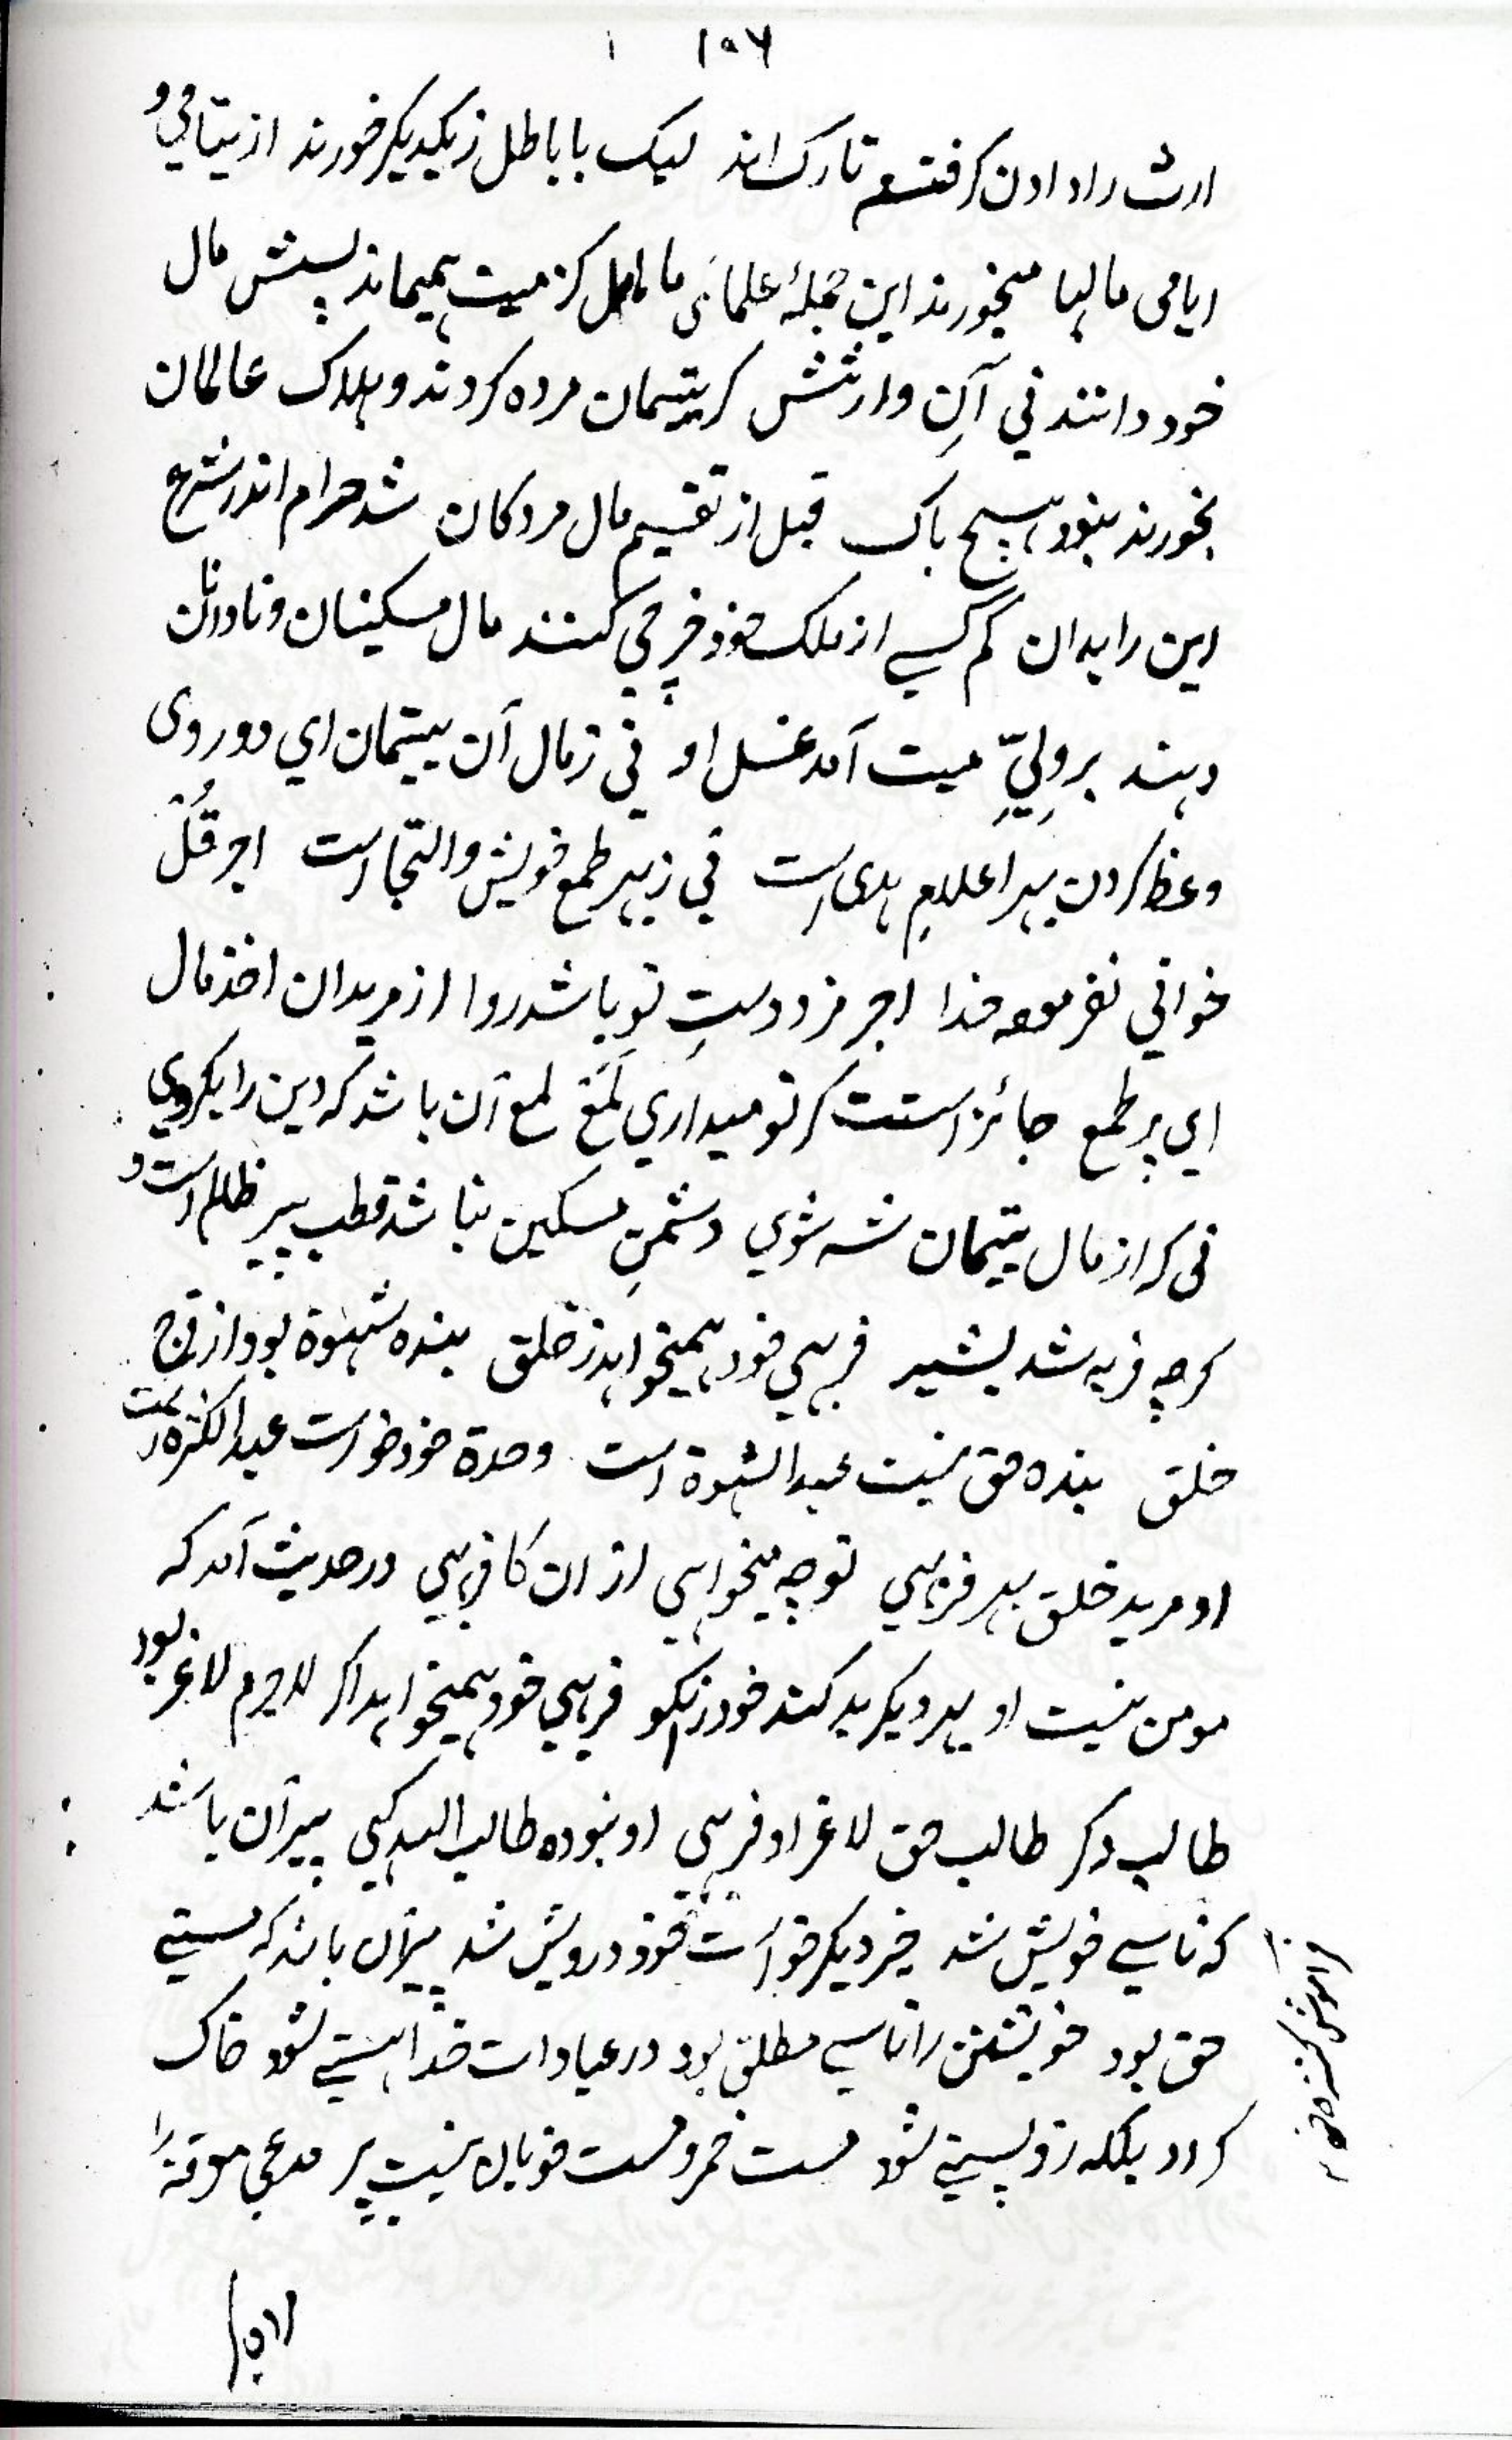 ۱۵۶
ارث را دادن گرفتن تارک اند لیک با باطل ز یکدیگر خورند از یتامی و
ایامی مالها میخورند این جملهٔ علمای ما مال کز میت همیماند پسش مال
خود دانند نی آنِ وارثش گر یتیمان مرده گردند و هلاک عالمان
بخورند نبود هیچ باک قبل از تقسیم مال مردگان شد حرام اندر شرع
این را بدان کم کسی از ملک خود خرچی کنند مال مسکینان و نادانان
دهند بر ولیِّ میت آمد غسل او نی ز مال آن یتیمان ای دو روی
وعظ کردن بهر اعلامِ هدی است نی ز بهر طمع خویش و التجا است اجر قُلْ
خوانی نفرموده خدا اجر مزد دستِ تو باشد روا از مریدان اخذ مال
ای پر طمع جائز استت گر تو میداری لَمَع لمع آن باشد که دین را بگروی
نی که از مال یتیمان شه شوی دشمنِ مسکین نباشد قطب پیر ظالم است و
گرچه فربه شد بشیر فربهی خود همیخواهد ز خلق بنده شهوة بود از فرج
خلق بنده حق نیست عبد الشهوة است وحدة خود خواست عبد الکثرة است
او مرید خلق بهر فربهی تو چه میخواهی از ان کافربهی در حدیث آمد که
مومن نیست او بهر دیگر بد کند خود را نکو فربهی خود همیخواهد اگر لاجرم لاغر بود
طالب دگر طالب حق لاغر او فربهی او نبوده طالب الهی پیر آن باشد
که ناسی خویش شد خیر دیگر خواست خود درویش شد پیر آن باشد که مستی
حق بود خویشتن را ناسی مطلق بود در عبادات خدا هستی نشود خاک
گردد بلکه زو پستی شود مست خمر و مست خوبان نیست پیر مدعی معرفة را
فراموش کننده خود ۱۲